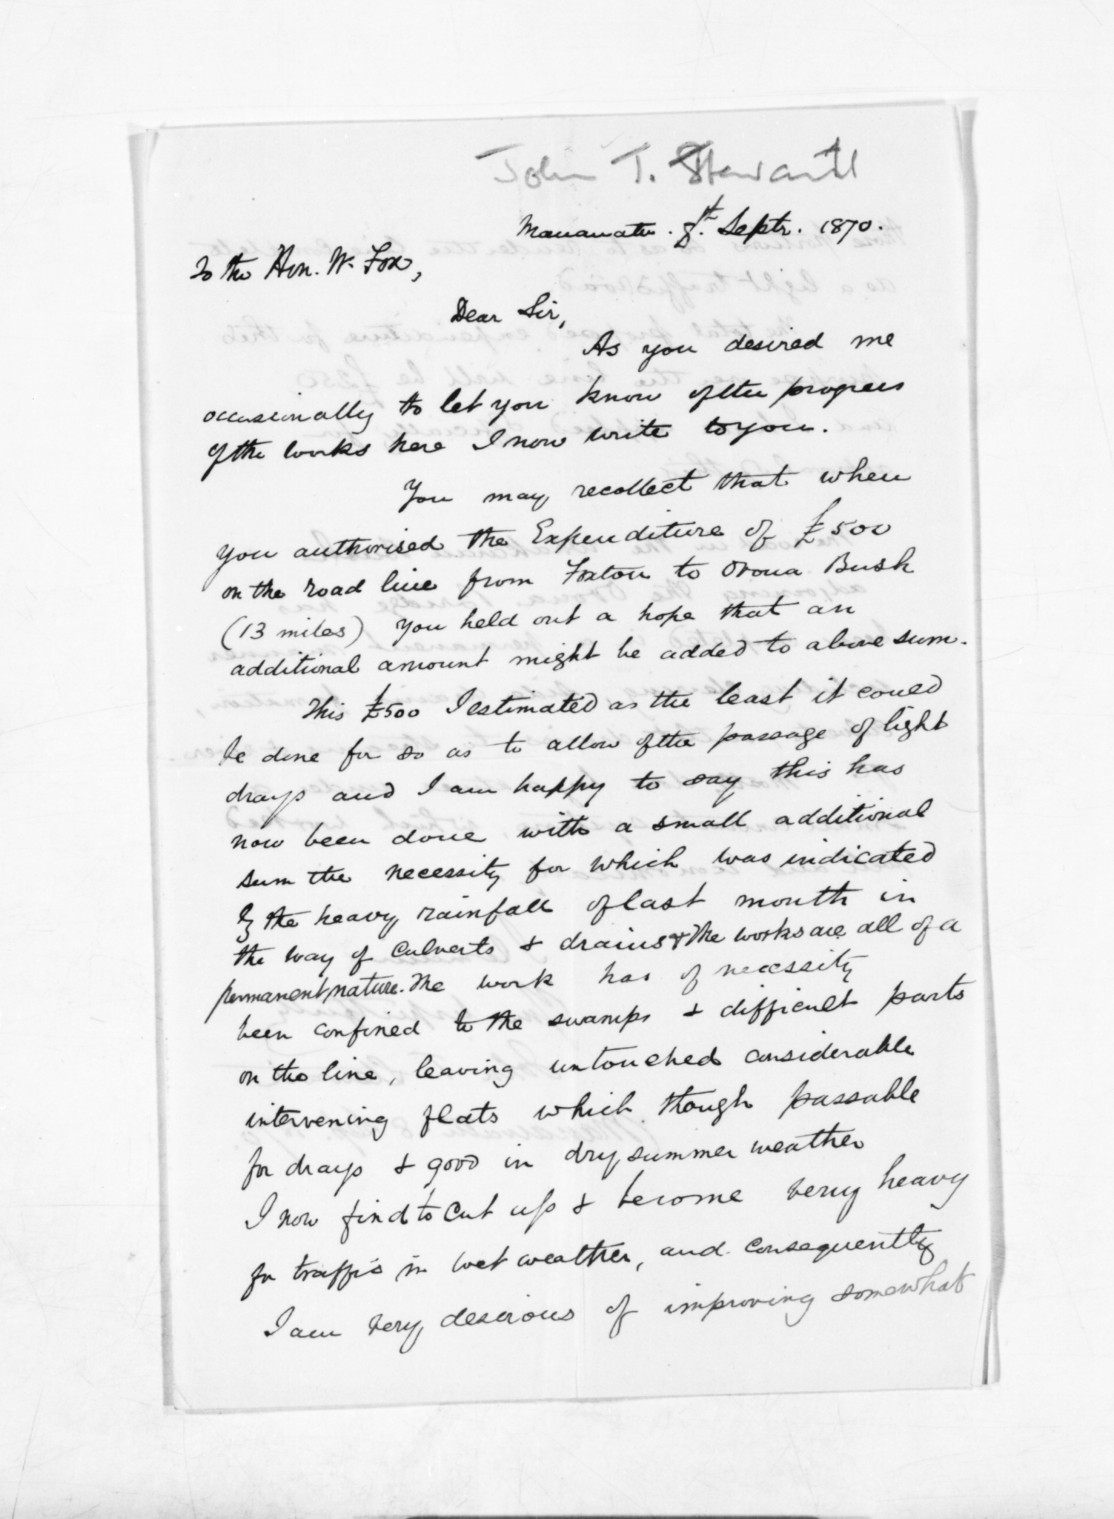 John T. Stewart
Manawatu. 8th. Septr. 1870.
To the Hon. W. Fox,
Dear Sir,
As you desired me
occasionally to let you know of the progress
of the works here I now write to you.
You may recollect that when
you authorised the Expenditure of £500
on the road line from Foxton to Oroua Bush
(13 miles) you held out a hope that an
additional amount might be added to above sum.
This £500 I estimated as the least it could
be done for so as to allow of the passage of light
drays and I am happy to say this has
now been done with a small additional
sum the necessity for which was indicated
by the heavy rainfall of last month in
the way of culverts & drains & the works are all of a
permanent nature. The work has of necessity
been confined to the swamps & difficult parts
on the line, leaving untouched considerable
intervening flats which though passable
for drays & good in dry summer weather
I now find to cut up & become very heavy
for traffic in wet weather, and consequently
I am very desirous of improving somewhat